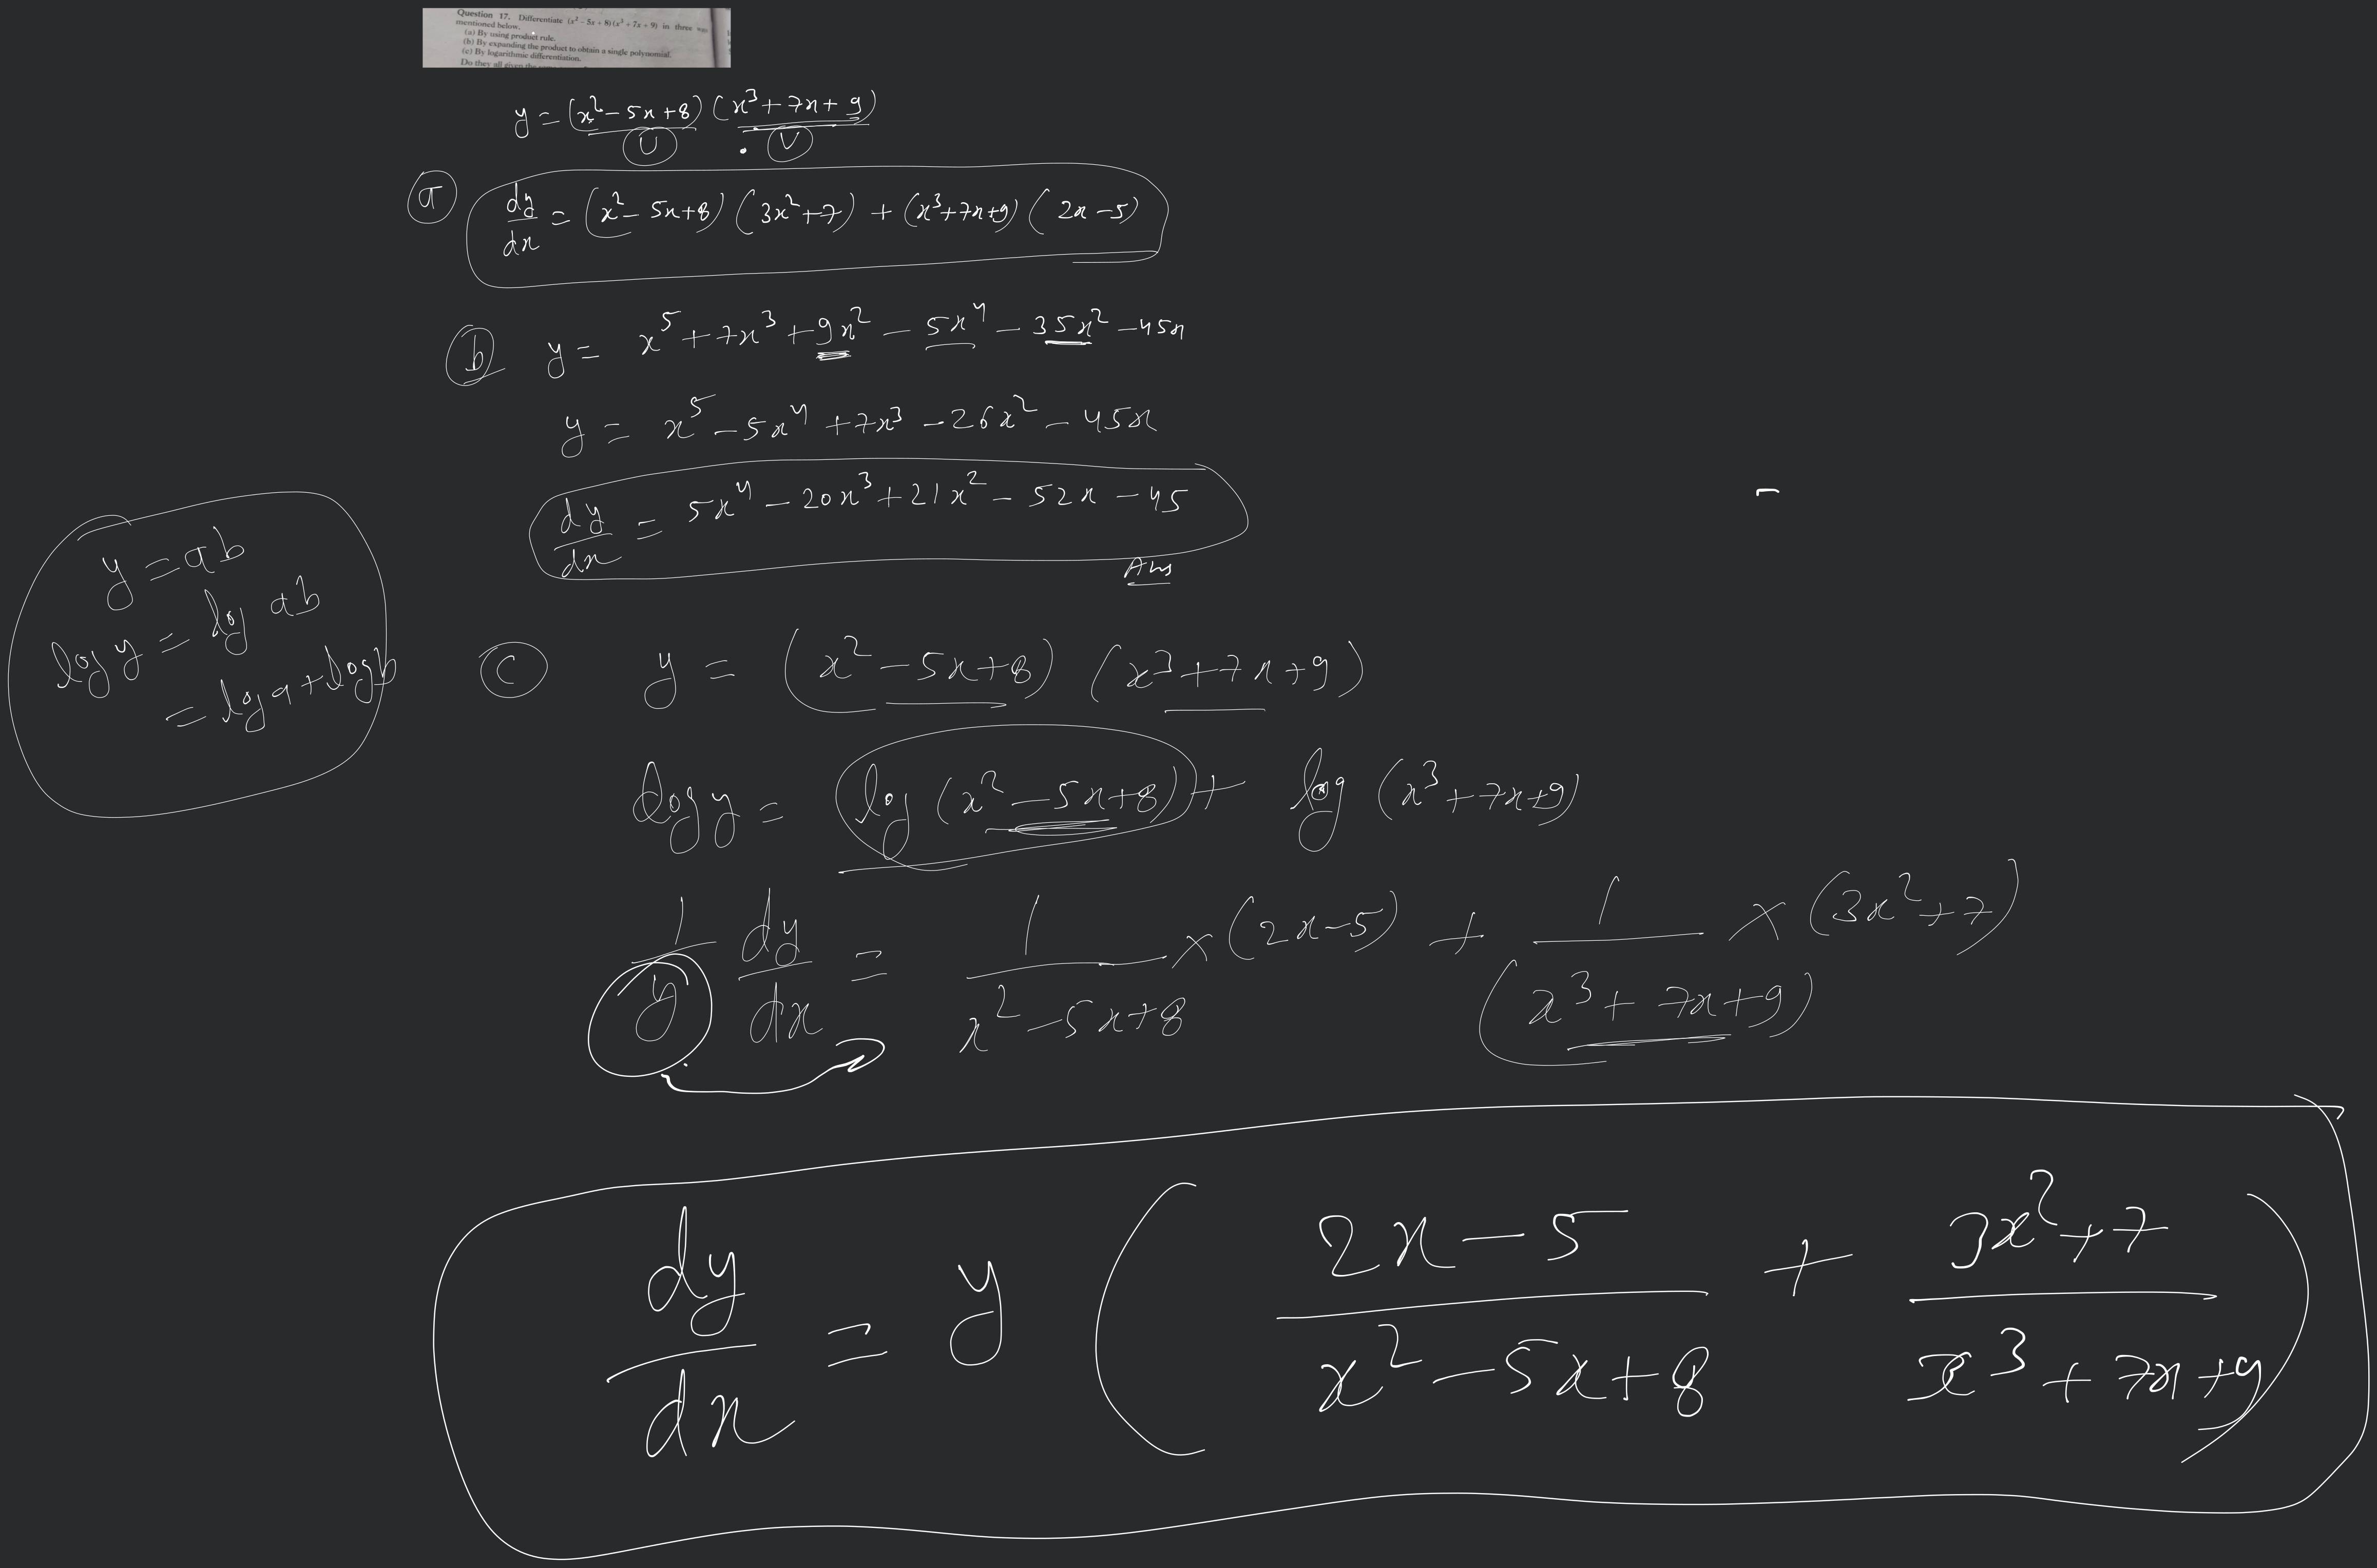 Question 17. Differentiate (x² - 5x + 8) (x³ + 7x + 9) in three
mentioned below.
(a) By using product rule.
(b) By expanding the product to obtain a single polynomial.
(c) By logarithmic differentiation.
Do they all given the
y = (x² - 5x + 8) (x³ + 7x + 9)
U . V
a dy/dx = (x² - 5x + 8) (3x² + 7) + (x³ + 7x + 9) (2x - 5)
b y = x⁵ + 7x³ + 9x² - 5x⁴ - 35x² - 45x
y = x⁵ - 5x⁴ + 7x³ - 26x² - 45x
dy/dx = 5x⁴ - 20x³ + 21x² - 52x - 45
Ans
y = ab
log y = log ab
= log a + log b
c y = (x² - 5x + 8) (x³ + 7x + 9)
log y = log (x² - 5x + 8) + log (x³ + 7x + 9)
1/y dy/dx = 1/(x² - 5x + 8) × (2x - 5) + 1/(x³ + 7x + 9) × (3x² + 7)
dy/dx = y ( (2x - 5)/(x² - 5x + 8) + (3x² + 7)/(x³ + 7x + 9) )